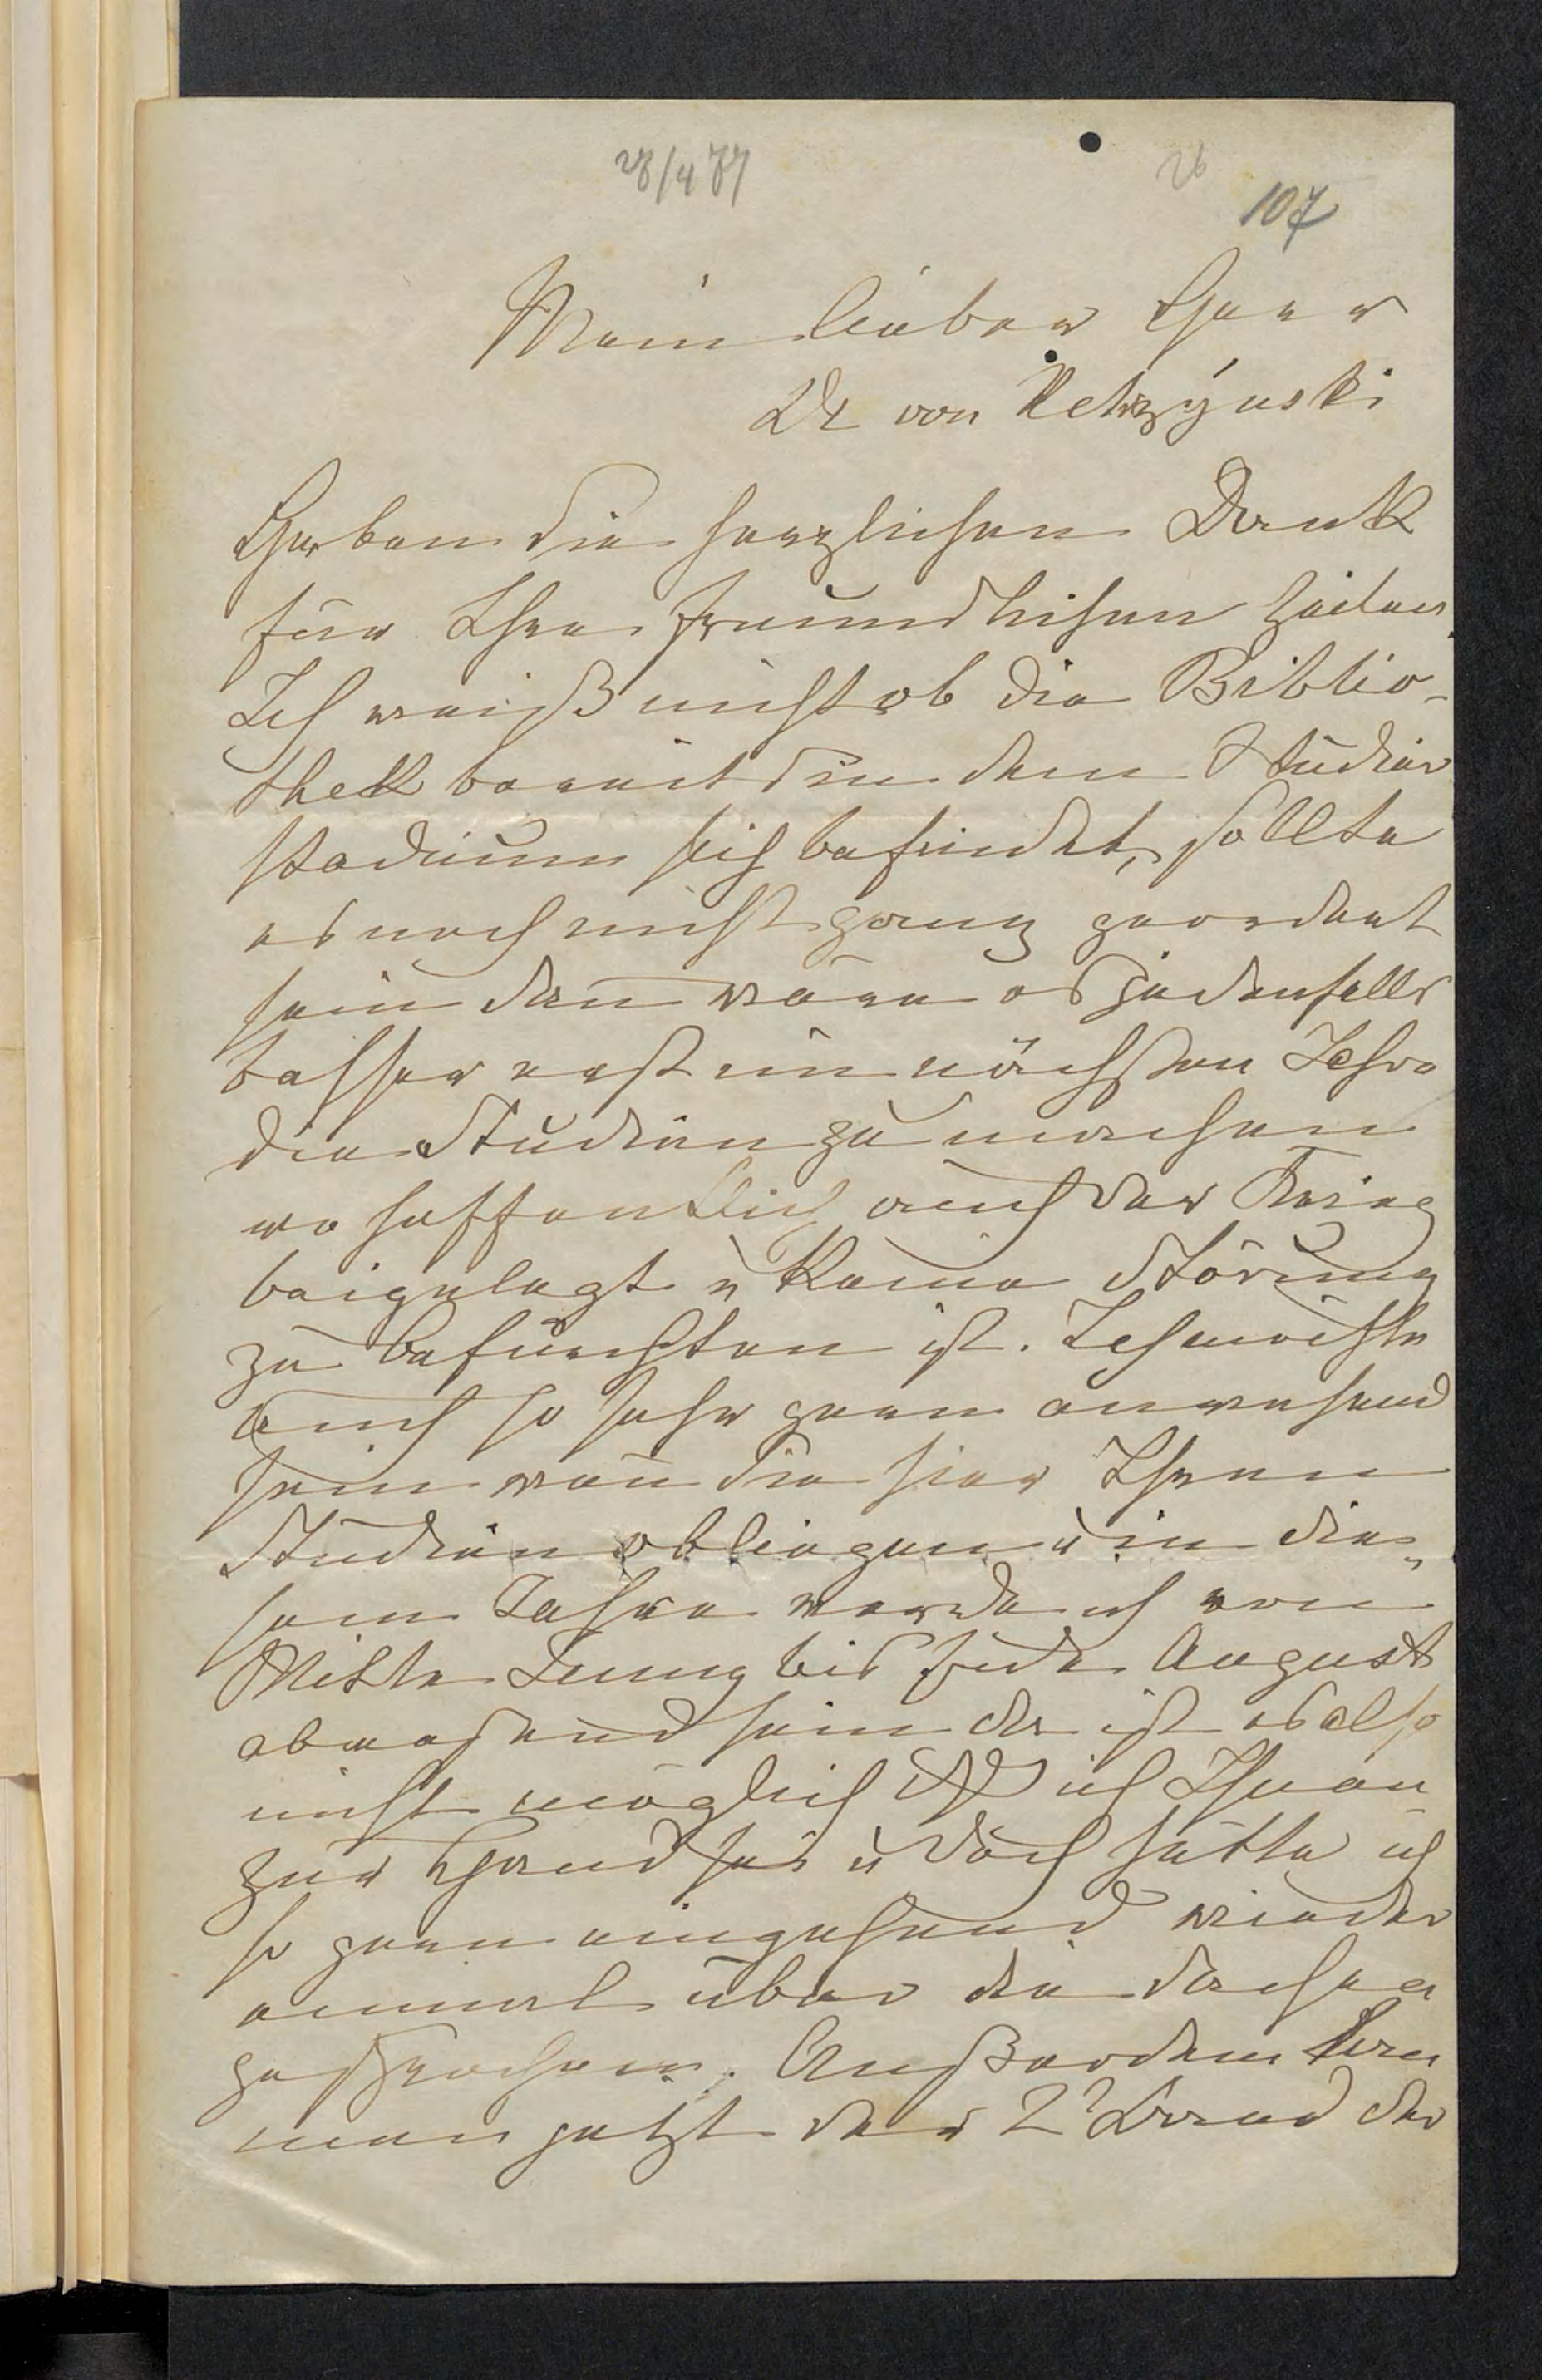 28/4 77
26
107
Mein lieber Herr
Dr von Ketrzýnski
Haben Sie herzlichen Dank
für Ihre freundlichen Zeilen.
Ich weiß nicht ob die Biblio-
thek bereits in dem Studier
stadium sich befindet, sollte
es noch nicht ganz geordnet
sein dann wäre es jedenfalls
besser erst im nächsten Jahre
die Studien zu machen
wo hoffentlich auch der Krieg
beigelegt u keine Störung
zu befürchten ist. Ich möchte
auch so sehr gern anwesend
sein wenn Sie hier Ihren
Studien obliegen u in die-
sem Jahre werde ich von
Mitte Juny bis Ende August
abwesend sein da ist es also
nicht möglich daß ich Ihnen
zur Hand sei u doch hätte ich
so gern eingehend wieder
einmal über die Sachen
gesprochen. Außerdem kann
man jetzt der 2ᵗ Band der